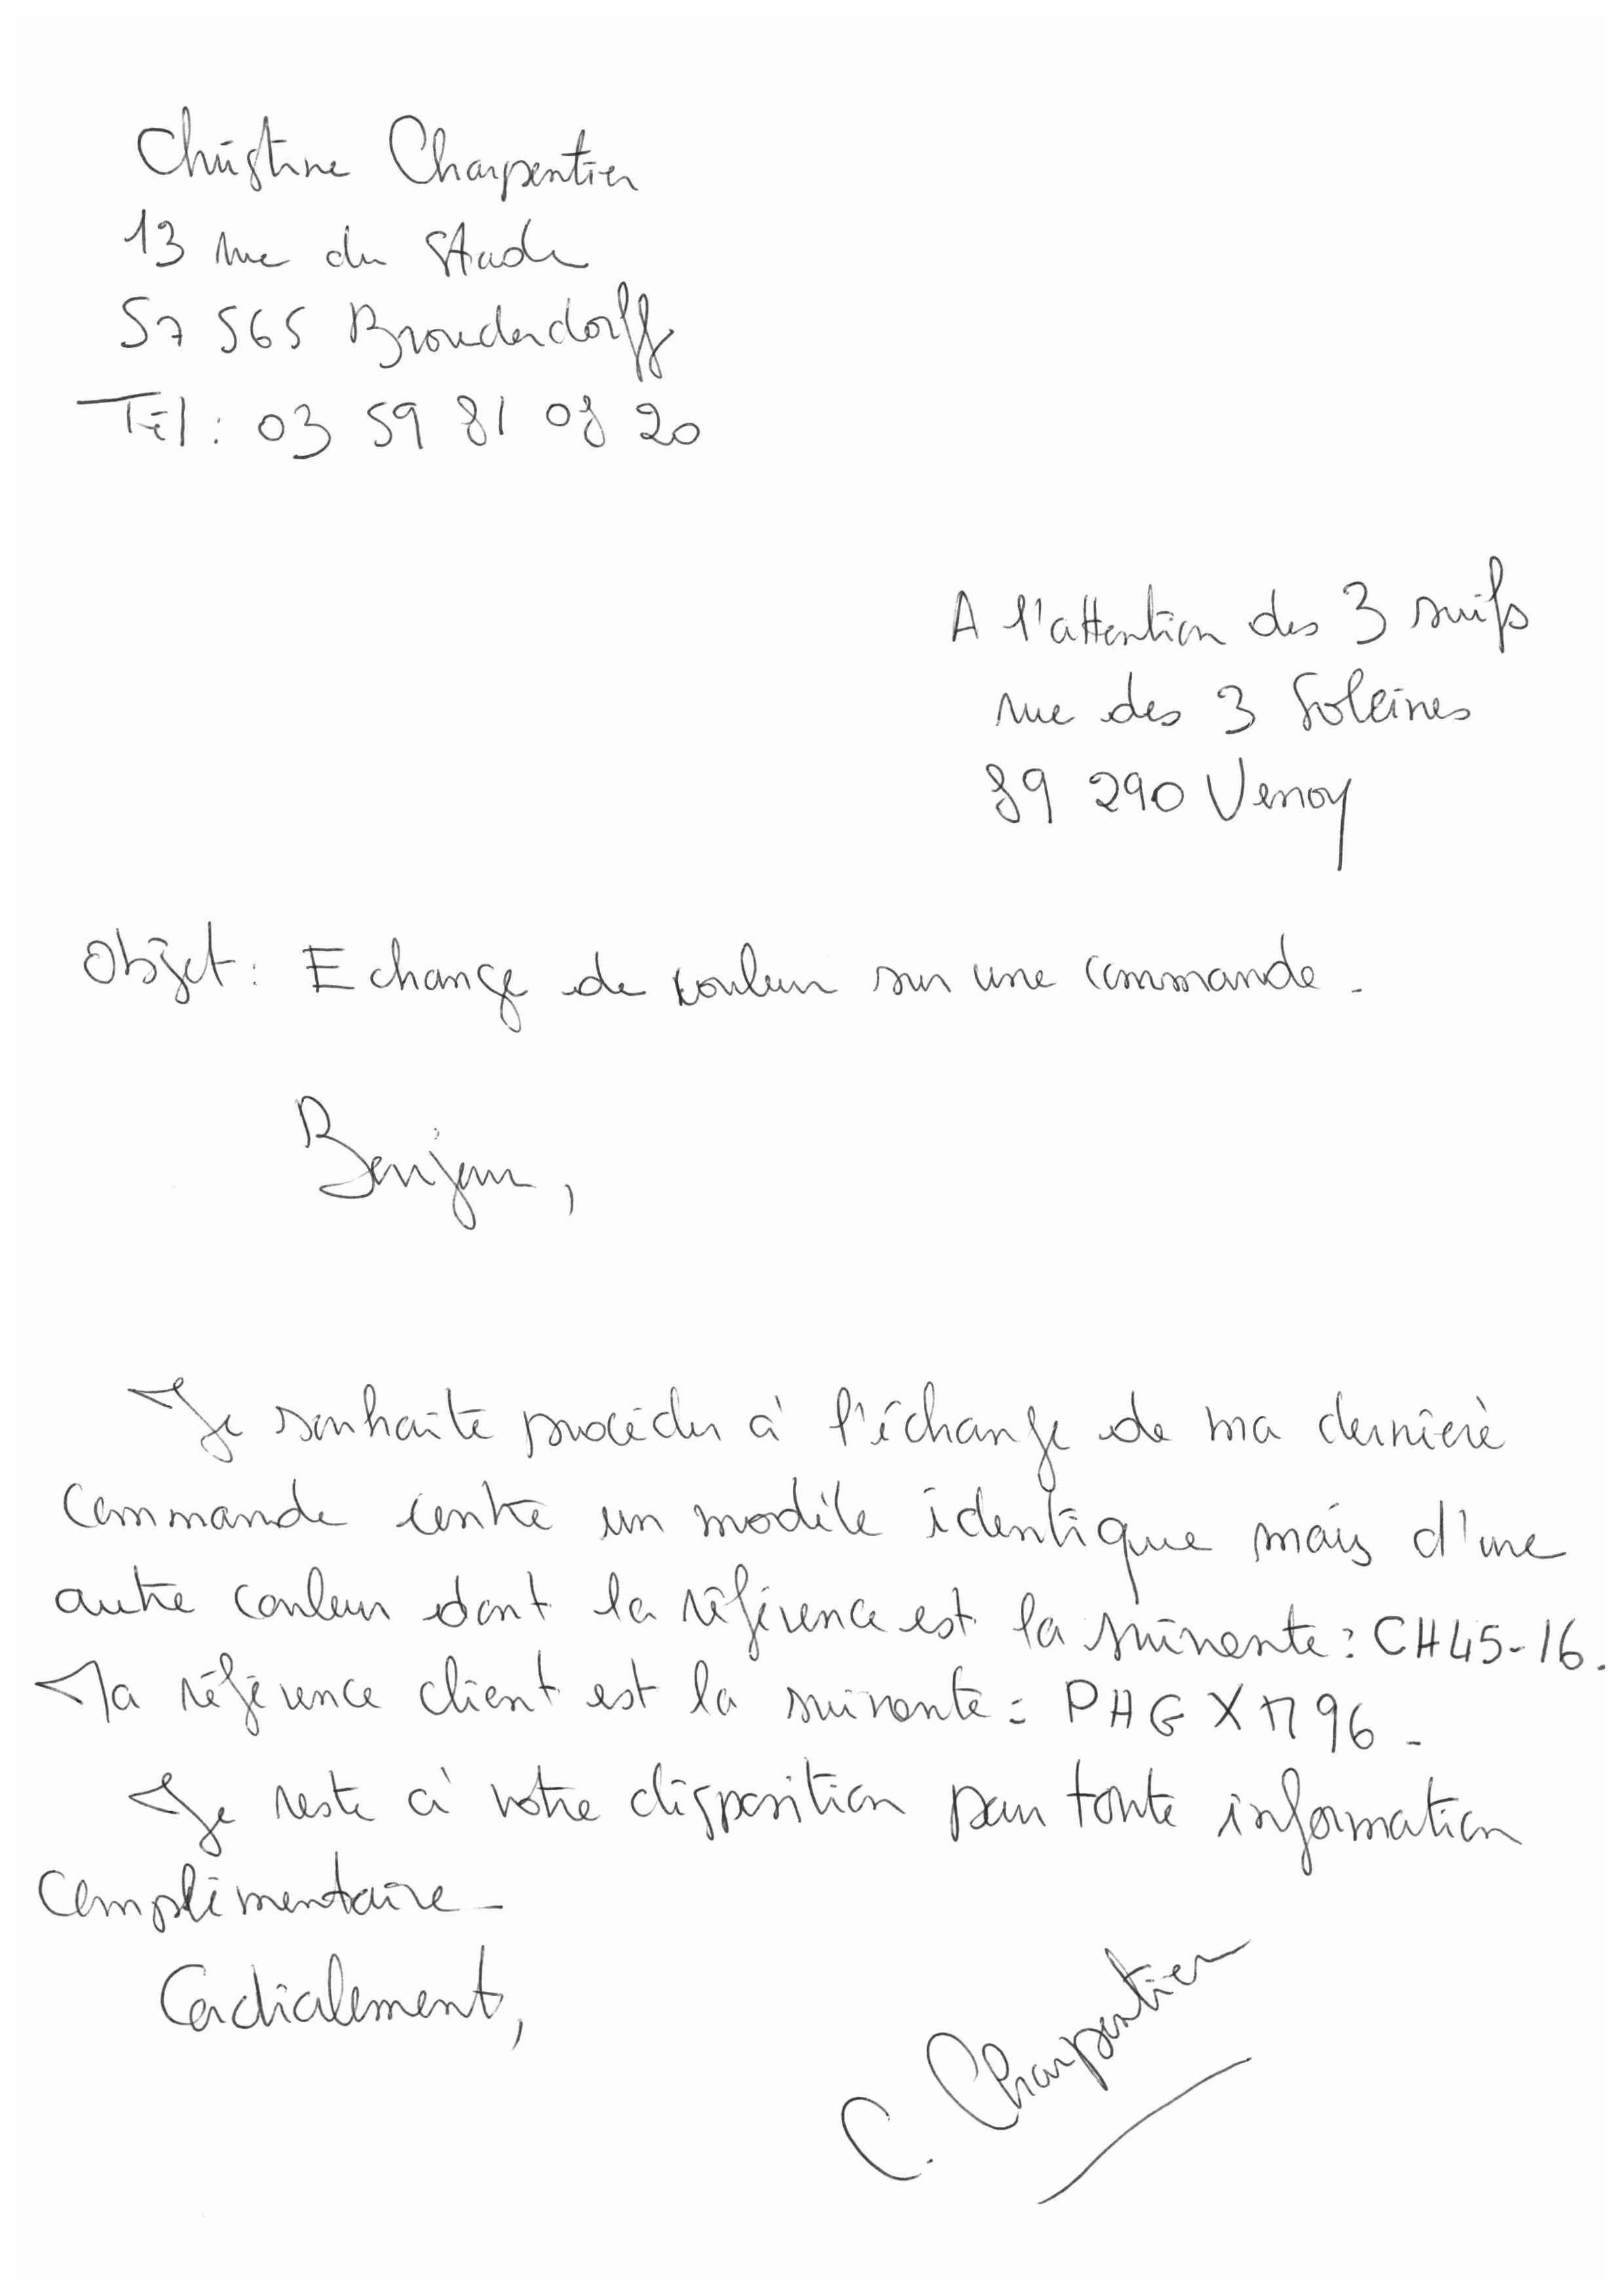 Christine Charpentier
13 rue du Stade
57 565 Brouderdorff
Tél : 03 59 81 08 20
A l'attention des 3 suifs
rue des 3 Soleines
89 290 Venoy
Objet : Echange de couleur sur une commande.
Bonjour,
Je souhaite procéder à l'échange de ma dernière
commande contre un modèle identique mais d'une
autre couleur dont la référence est la suivante : CH45-16.
Ma référence client est la suivante : PHGXM96.
Je reste à votre disposition pour toute information
complémentaire.
Cordialement,
C. Charpentier